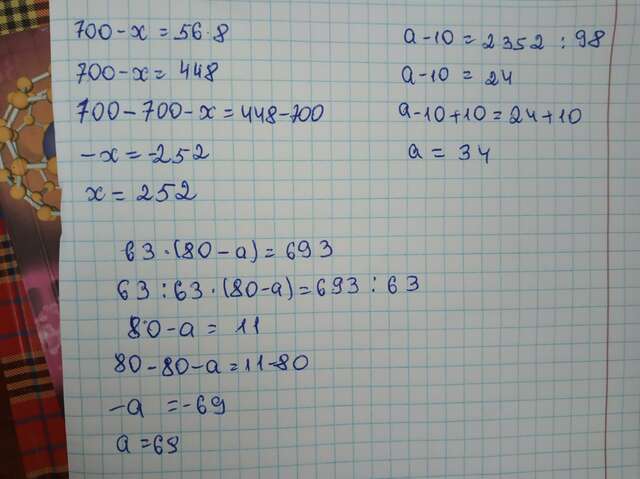 700 - x = 56 · 8
700 - x = 448
700 - 700 - x = 448 - 700
- x = -252
x = 252
a - 10 = 2352 : 98
a - 10 = 24
a - 10 + 10 = 24 + 10
a = 34
63 · (80 - a) = 693
63 : 63 · (80 - a) = 693 : 63
80 - a = 11
80 - 80 - a = 11 - 80
- a = -69
a = 69